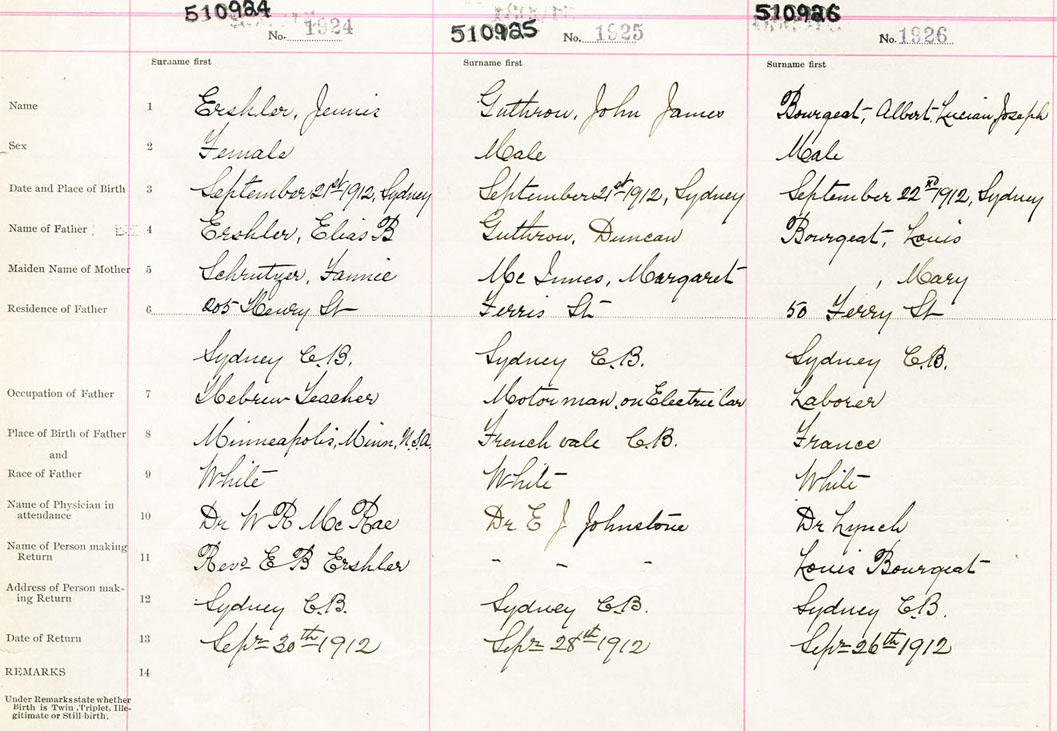 510924 510925 510926
No. 1924 No. 1925 No. 1926
Surname first Surname first Surname first
Name 1 Ershler, Jennie Guthrow, John James Bourgeat, Albert Lucian Joseph
Sex 2 Female Male Male
Date and Place of Birth 3 September 21st 1912, Sydney September 21st 1912, Sydney September 22nd 1912, Sydney
Name of Father 4 Ershler, Elias B Guthrow, Duncan Bourgeat, Louis
Maiden Name of Mother 5 Schrutzer, Fannie Mc Innes, Margaret , Mary
Residence of Father 6 205 Henry St Ferris St 50 Ferry St
Sydney C.B. Sydney C.B. Sydney C.B.
Occupation of Father 7 Hebrew Teacher Motorman on Electric Car Laborer
Place of Birth of Father 8 Minneapolis, Minn, U.S.A. French vale C.B. France
and
Race of Father 9 White White White
Name of Physician in
attendance 10 Dr W R McRae Dr E J Johnstone Dr Lynch
Name of Person making
Return 11 Revd E B Ershler - - - Louis Bourgeat
Address of Person mak-
ing Return 12 Sydney C.B. Sydney C.B. Sydney C.B.
Date of Return 13 Sepr 30th 1912 Sepr 28th 1912 Sepr 26th 1912
REMARKS 14
Under Remarks state whether
Birth is Twin, Triplet, Ille-
gitimate or Still-birth.